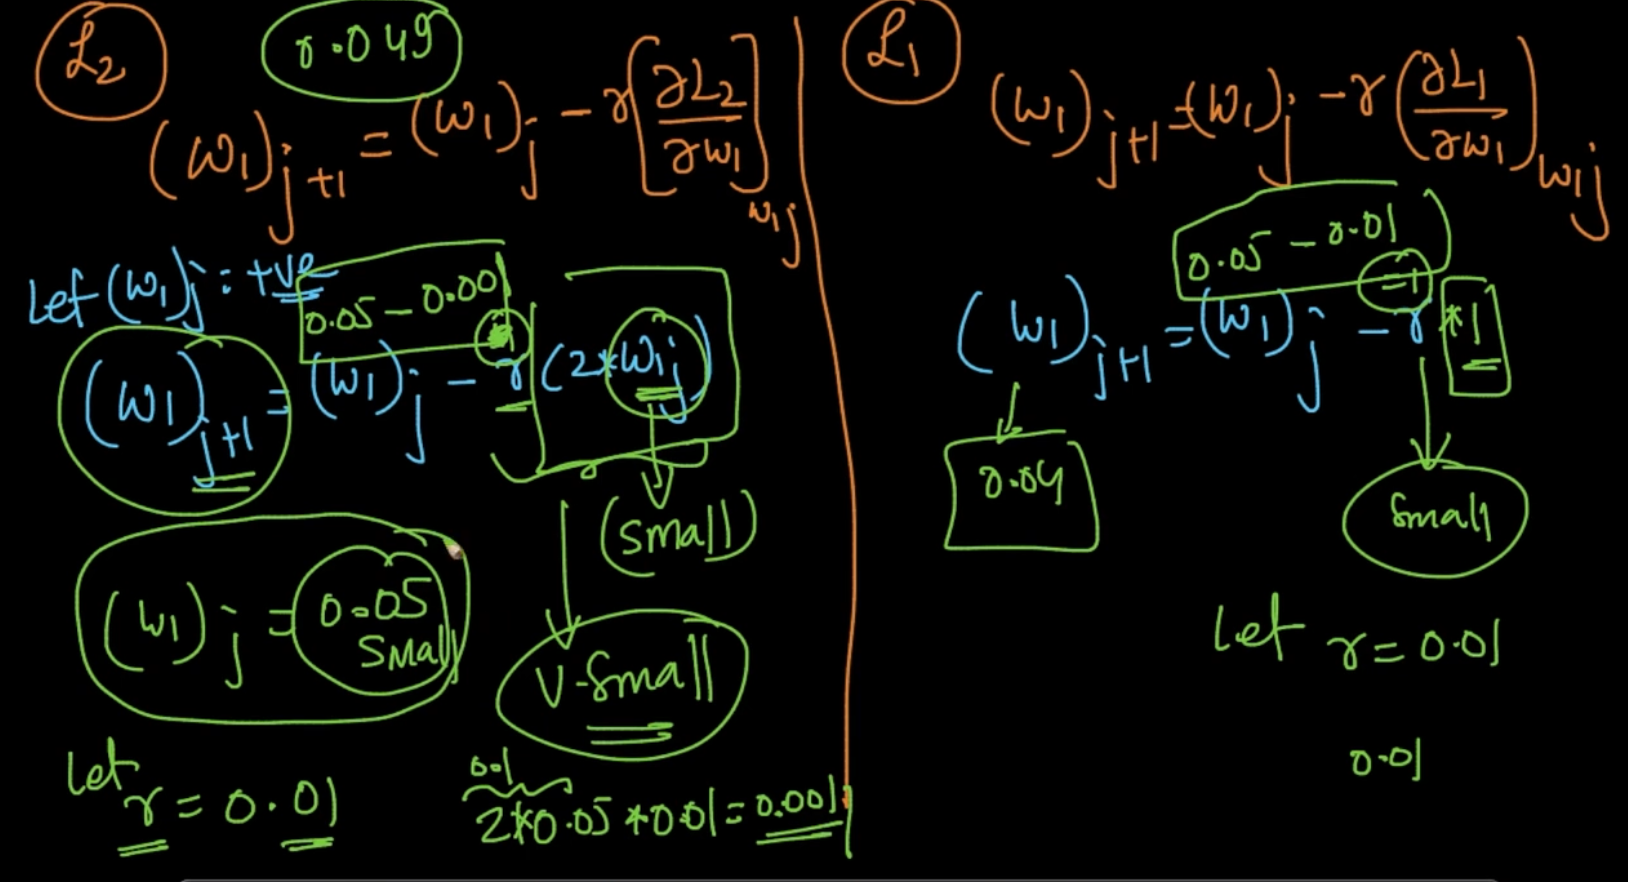 L₂
0.049
(w₁)ⱼ₊₁ = (w₁)ⱼ - r[∂L₂/∂w₁]w₁ⱼ
Let (w₁)ⱼ = +ve
0.05 - 0.001
(w₁)ⱼ₊₁ = (w₁)ⱼ - r(2*w₁ⱼ)
(small)
(w₁)ⱼ = 0.05
Small
V-small
Let
r = 0.01
0.1
2*0.05*0.01 = 0.001
L₁
(w₁)ⱼ₊₁ = (w₁)ⱼ - r(∂L₁/∂w₁)w₁ⱼ
0.05 - 0.01
(w₁)ⱼ₊₁ = (w₁)ⱼ - r*1
0.04
Small
Let r = 0.01
0.01